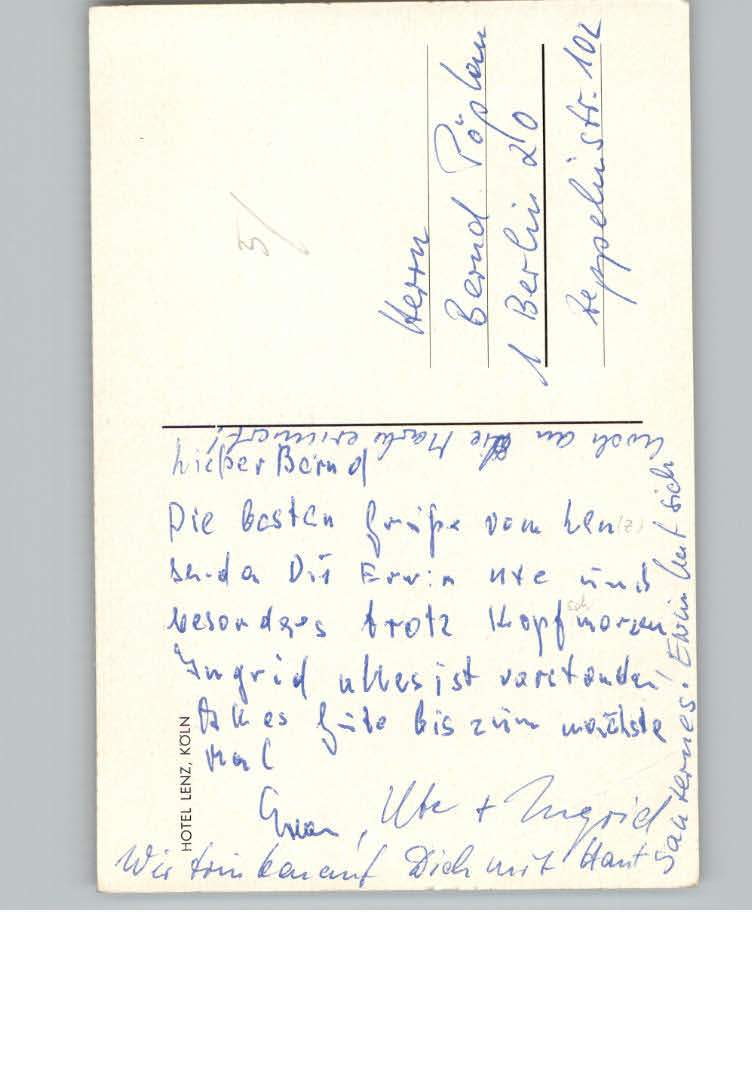 Herrn
Bernd Pöplau
1 Berlin 20
Zeppelinstr. 102
Lieber Bernd
Die besten Grüße vom Len(z)
senden Dir Erwin Ute und
besonders trotz Kopfschmorzen
Ingrid alles ist verstanden!
Alles Gute bis zum nächste
Mal
Erwin, Ute + Ingrid
Wir trinken auf Dich mit Haut
Sauternes. Erwin hat sich
noch an die Marke erinnert!
HOTEL LENZ, KÖLN
5/